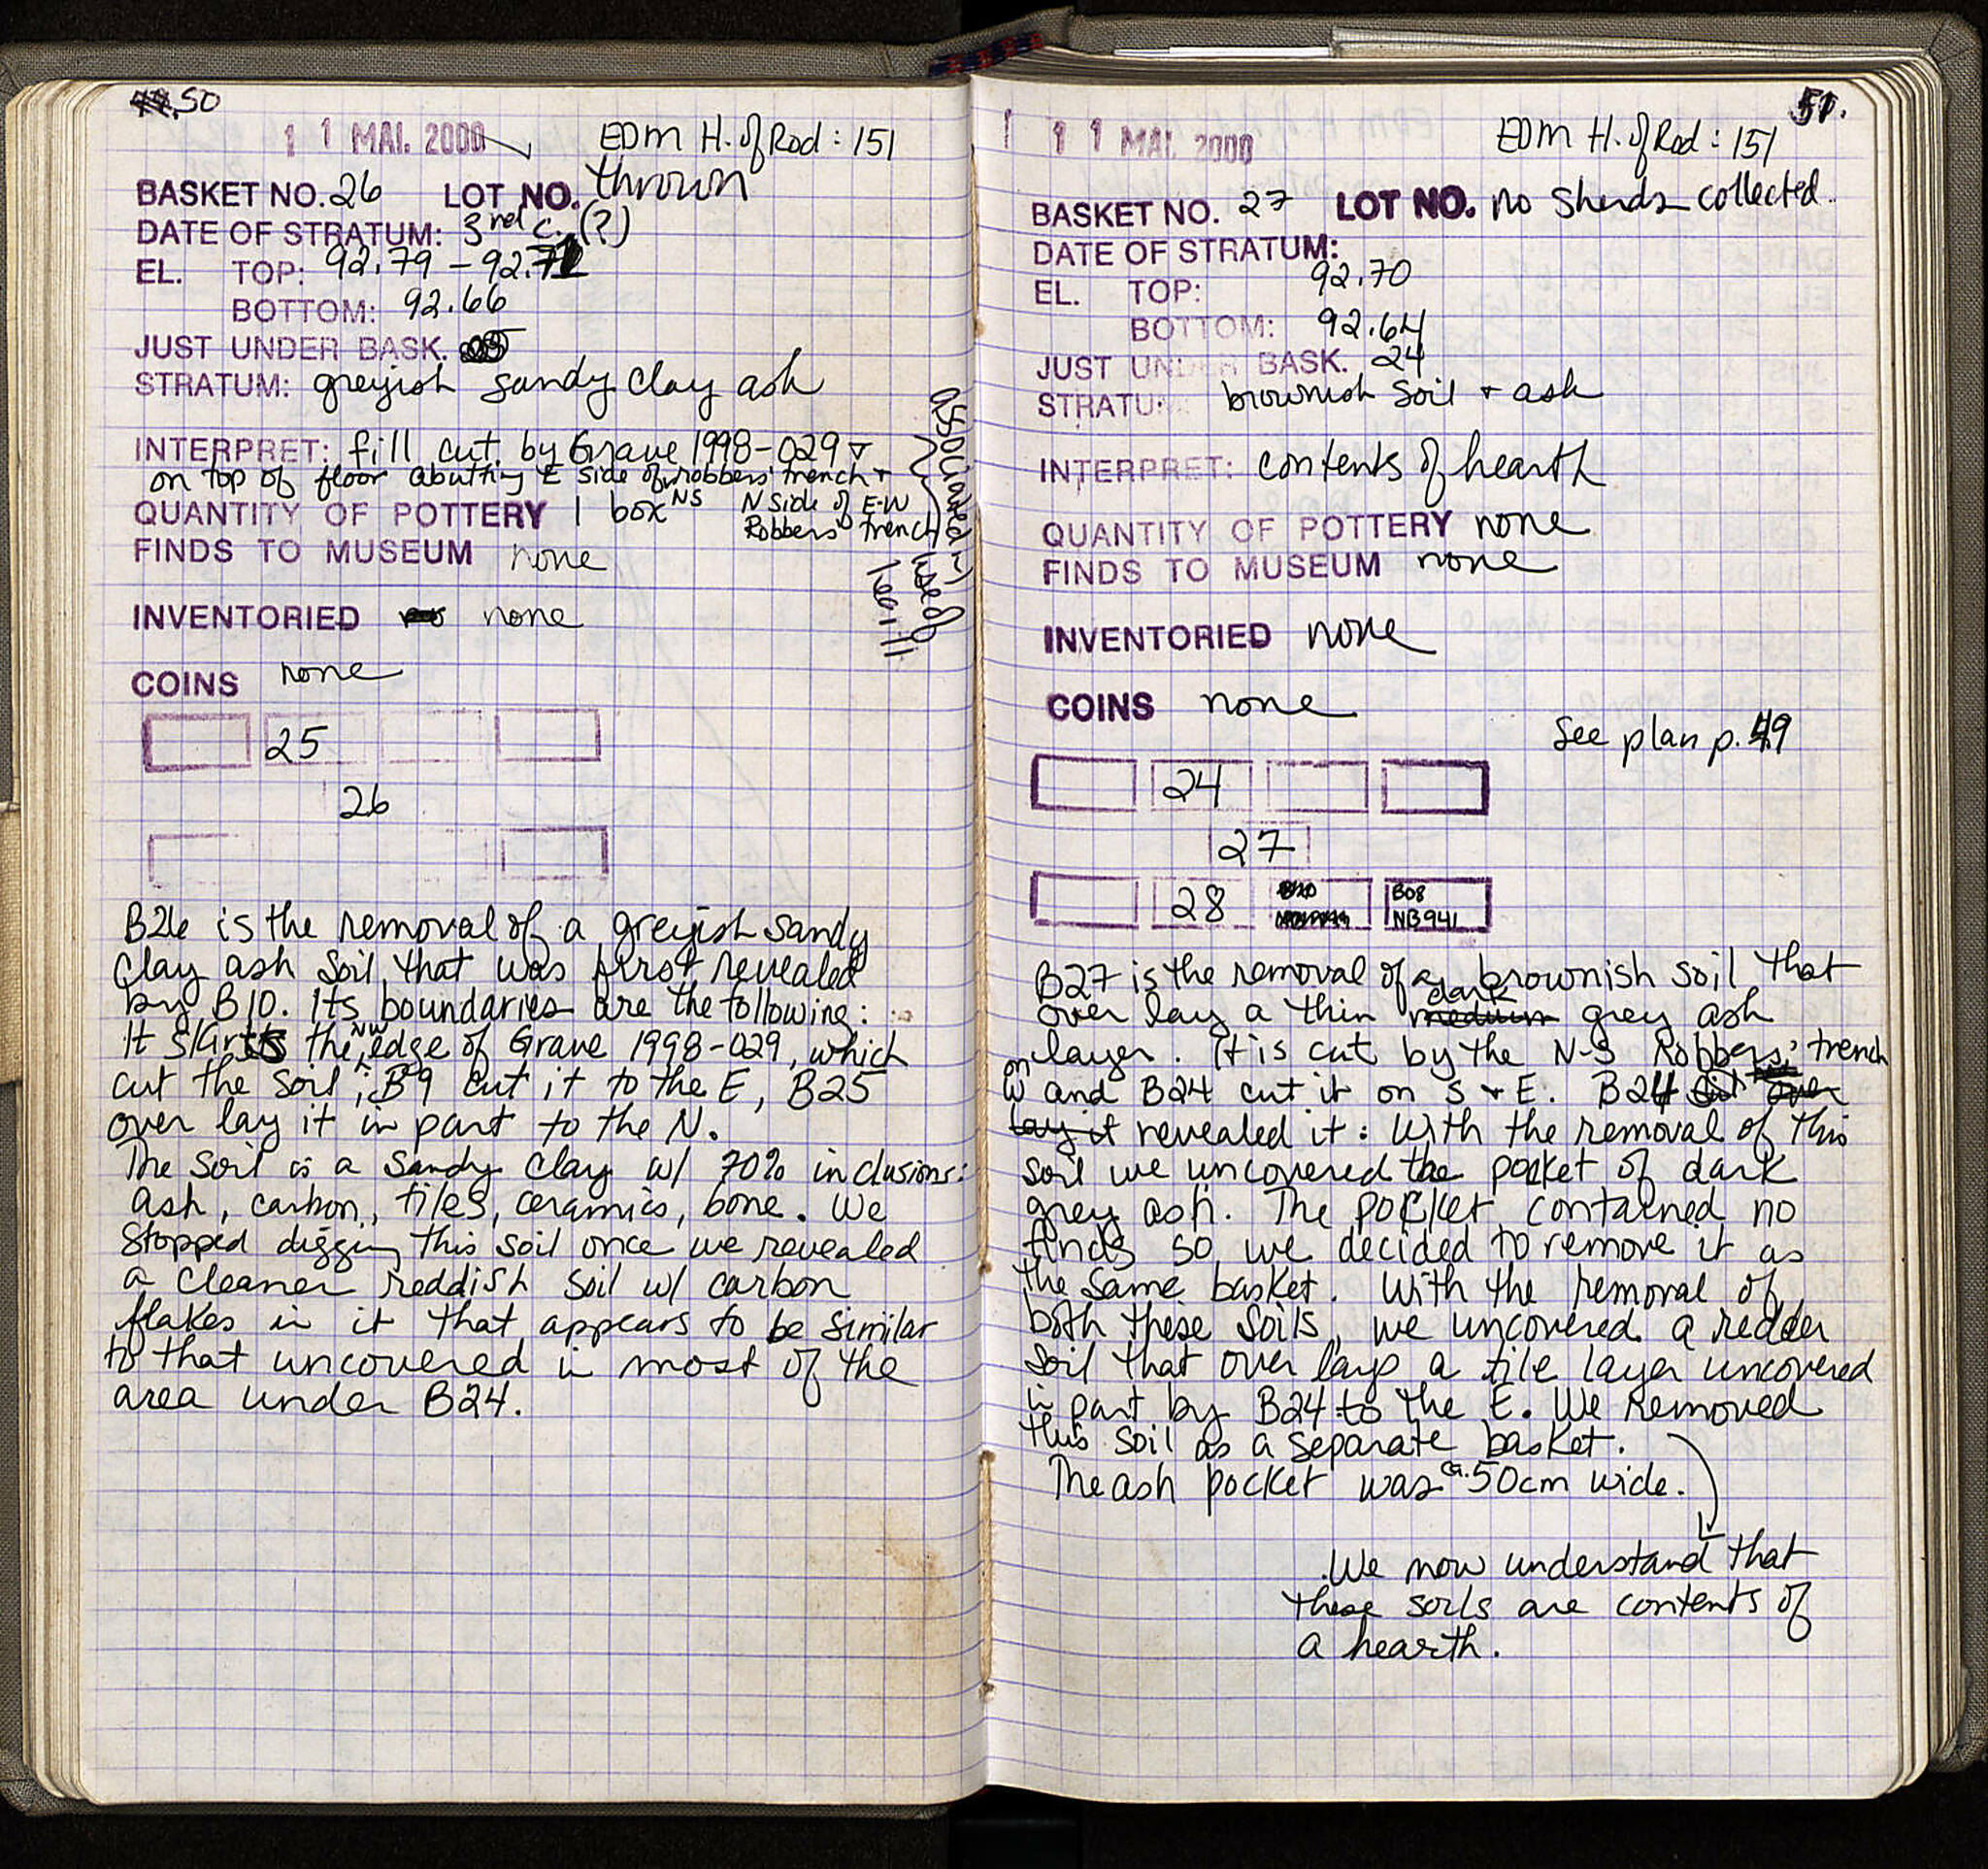 50
11 MAI. 2000 EDM H. of Rod: 151
BASKET NO. 26 LOT NO. thrown
DATE OF STRATUM: 3rd c. (?)
EL. TOP: 92.79 - 92.71
BOTTOM: 92.66
JUST UNDER BASK.
STRATUM: greyish sandy clay ash
INTERPRET: fill cut by Grave 1998-029 +
on top of floor abutting E side of NS robbers' trench +
N side of E-W
Robbers' trench
associated w/
use of
hearth
QUANTITY OF POTTERY 1 box
FINDS TO MUSEUM none
INVENTORIED none
COINS none
25
26
B26 is the removal of a greyish sandy
clay ash soil that was first revealed
by B10. Its boundaries are the following:
It skirts the NW edge of Grave 1998-029, which
cut the soil; B9 cut it to the E, B25
over lay it in part to the N.
The soil is a sandy clay w/ 70% inclusions:
ash, carbon, tiles, ceramics, bone. We
stopped digging this soil once we revealed
a cleaner reddish soil w/ carbon
flakes in it that appears to be similar
to that uncovered in most of the
area under B24.
51.
11 MAI. 2000 EDM H. of Rod: 151
BASKET NO. 27 LOT NO. no sherds collected.
DATE OF STRATUM:
EL. TOP: 92.70
BOTTOM: 92.64
JUST UNDER BASK. 24
STRATUM: brownish soil + ash
INTERPRET: contents of hearth
QUANTITY OF POTTERY none
FINDS TO MUSEUM none
INVENTORIED none
COINS none
See plan p. 49
24
27
28 B08
NB941
B27 is the removal of a brownish soil that
over lay a thin medium dark grey ash
layer. It is cut by the N-S Robbers' trench
on W and B24 cut it on S + E. B24 over
lay it revealed it: With the removal of this
soil we uncovered the pocket of dark
grey ash. The pocket contained no
finds so we decided to remove it as
the same basket. With the removal of
both these soils, we uncovered a redder
soil that over lays a tile layer uncovered
in part by B24 to the E. We removed
this soil as a separate basket.
The ash pocket was ca. 50cm wide.
We now understand that
these soils are contents of
a hearth.